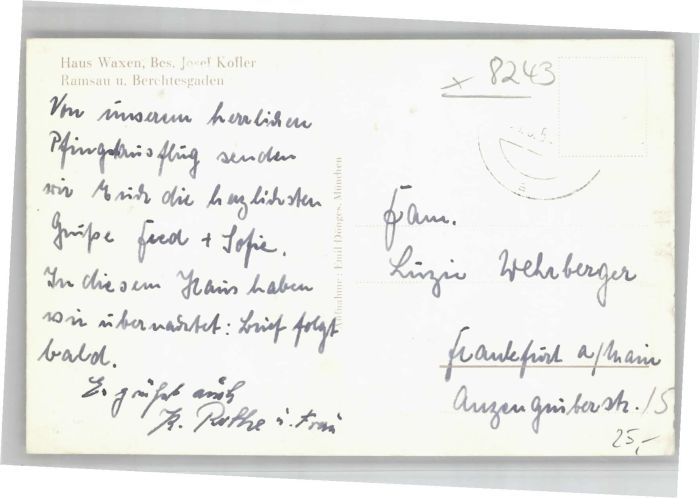 Haus Waxen, Bes. Josef Kofler
Ramsau u. Berchtesgaden
Von unserem herrlichen
Pfingstausflug senden
wir Euch die herzlichsten
Grüße Fred + Sofie.
In diesem Haus haben
wir übernachtet: Brief folgt
bald.
Es grüßt auch
K. Rothe u. Frau
Aufnahme: Emil Dönges, München
x 8243
Fam.
Luzie Wehrberger
Frankfurt a/Main
Anzengruberstr. 15
25,-